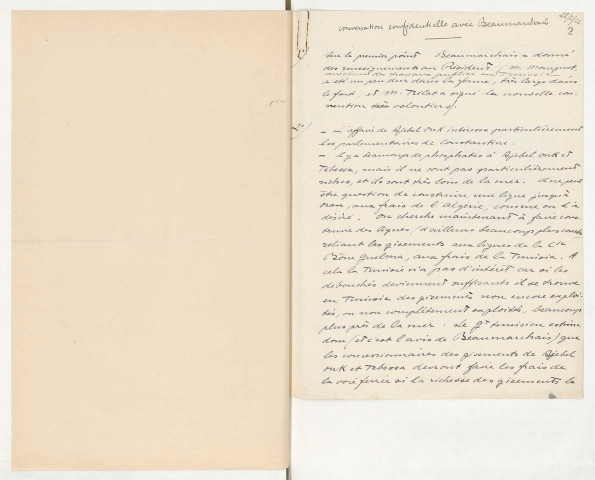 2
conversation confidentielle avec Beaumarchais
Sur le premier point Beaumarchais a donné
des renseignements au Résident (M. Mouquot,
directeur des travaux publics en Tunisie
a été un peu dur dans la forme, très large dans
le fond, et M. Trilat a signé la nouvelle con-
vention très volontiers).
– L'affaire de Djebel Onk intéresse particulièrement
les parlementaires de Constantine.
– Il y a beaucoup de phosphates à Djebel Onk et
Tebessa, mais il ne sont pas particulièrement
riches, et ils sont très loin de la mer. Il ne peut
être question de construire une ligne jusqu'à
aux frais de l'Algérie, comme on l'a
désiré. On cherche maintenant à faire cons-
truire des lignes (d'ailleurs beaucoup plus courtes
reliant les gisements aux lignes de la Cie
Bône Guelma, aux frais de la Tunisie. A
cela la Tunisie n'a pas d'intérêt car si les
débouchés deviennent suffisants il se trouve
en Tunisie des gisements non encore exploi-
tés, ou non complètement exploités, beaucoup
plus près de la mer. Le gt tunisien estime
donc (et c'est l'avis de Beaumarchais) que
les concessionnaires des gisements de Djebel
Onk et Tebessa devront faire les frais de
la voie ferrée si la richesse des gisements la